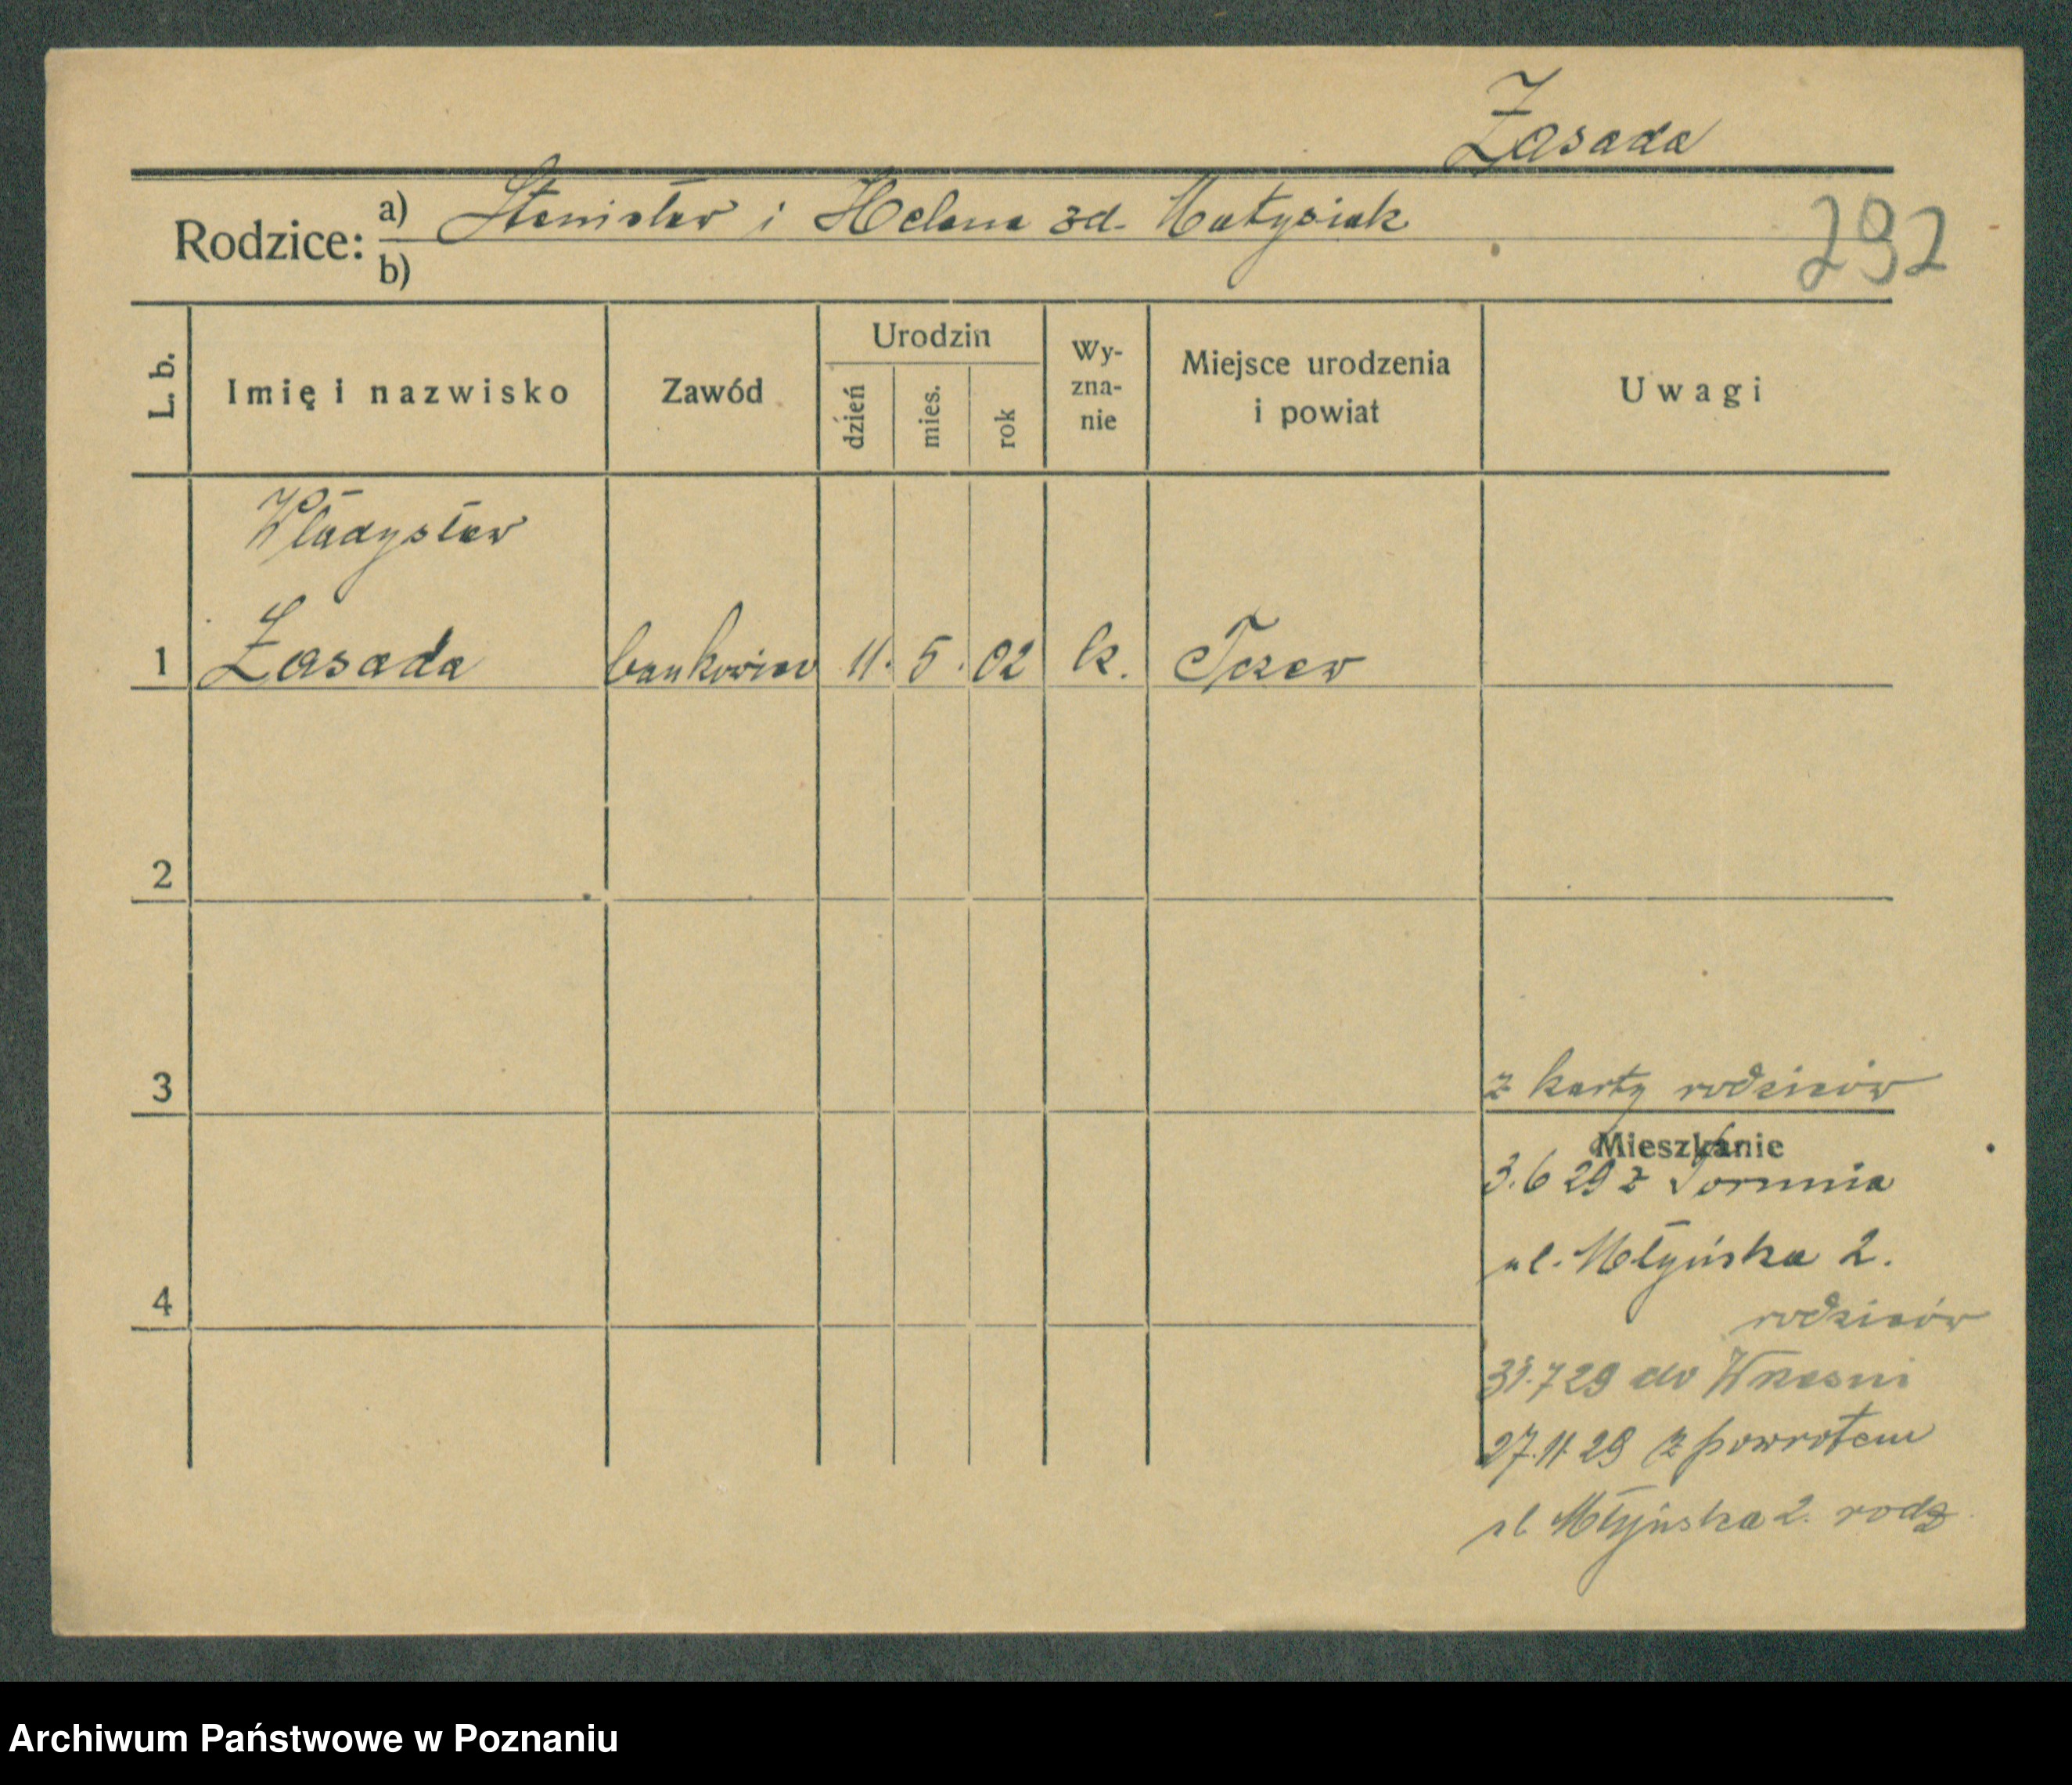 Zasada
Rodzice: a) Stanisław i Helena zd. Matysiak
292
b)
L. b.
Imię i nazwisko
Zawód
Urodzin
dzień
mies.
rok
Wy-
zna-
nie
Miejsce urodzenia
i powiat
Uwagi
Władysław
1 Zasada bankowiec 11. 5. 02 k. Tczew
2
3
z karty rodziców
Mieszkanie
3.6 29 z Torunia
ul. Młyńska 2.
4
rodziców
31.7 29 do Wrześni
27.11 29 z powrotem
ul Młyńska 2. rodz
Archiwum Państwowe w Poznaniu